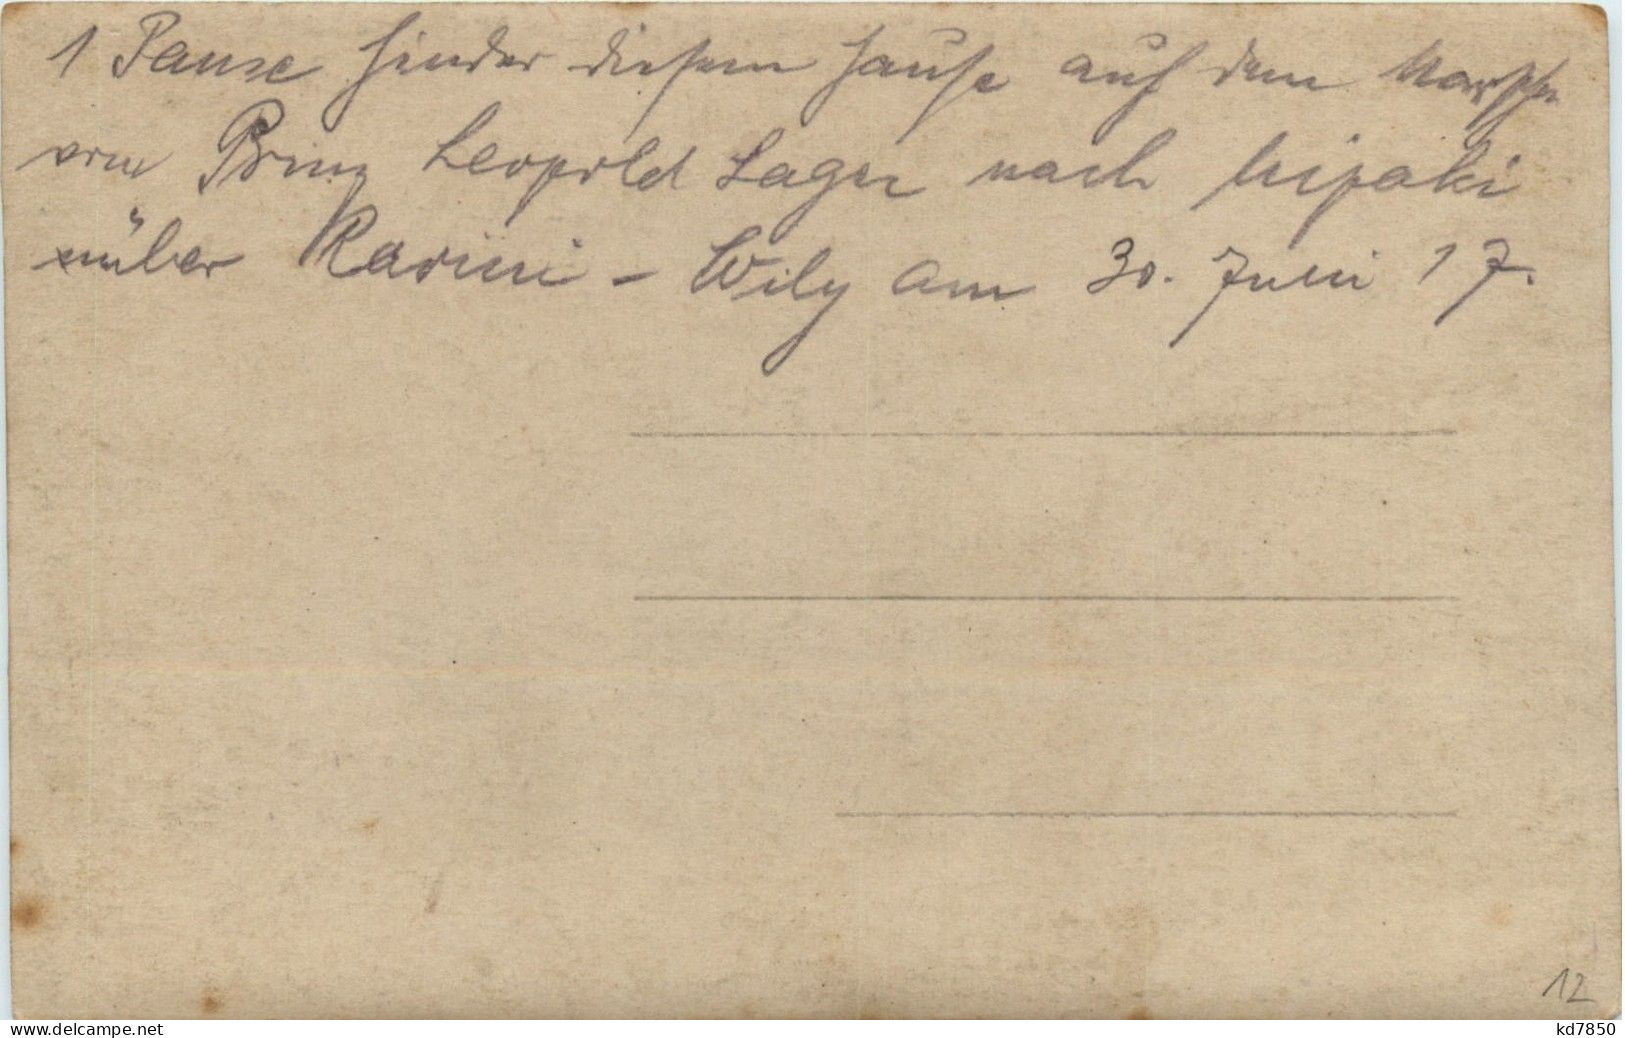 1 Pause hinder diesem Hause auf dem Marsche
vom Prinz Leopold Lager nach
über - Wily am 30. Juni 17.
12
www.delcampe.net
kd7850